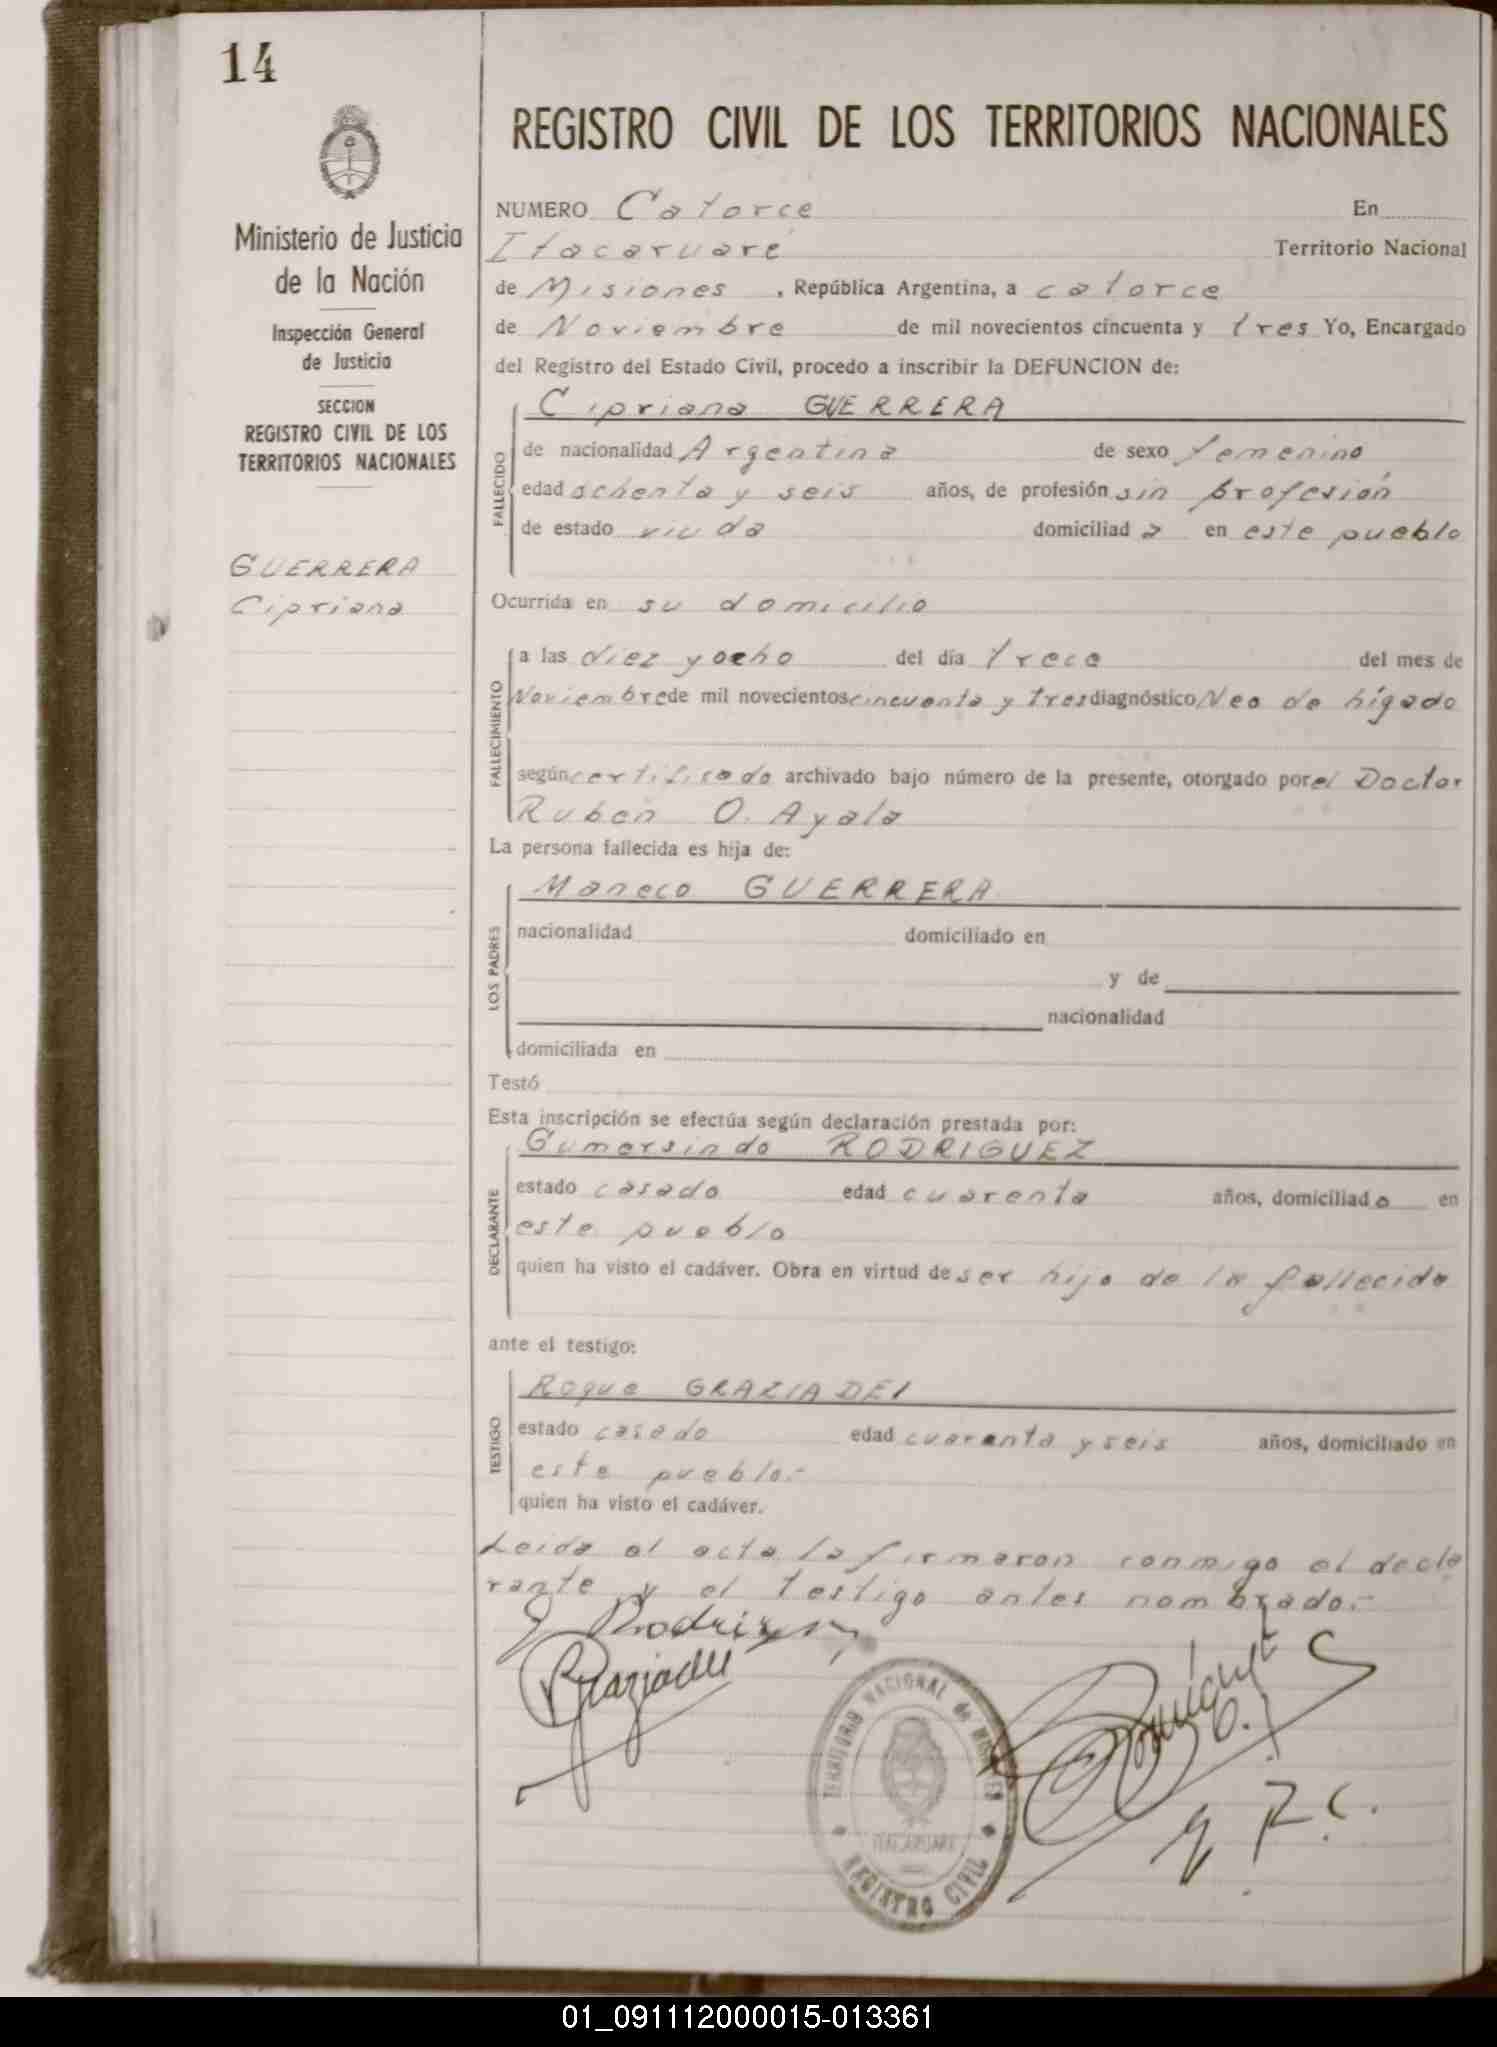 14
REGISTRO CIVIL DE LOS TERRITORIOS NACIONALES
Ministerio de Justicia
de la Nación
Inspección General
de Justicia
SECCION
REGISTRO CIVIL DE LOS
TERRITORIOS NACIONALES
GUERRERA
Cipriana
NUMERO Catorce En
Itacaruaré Territorio Nacional
de Misiones , República Argentina, a catorce
de Noviembre de mil novecientos cincuenta y tres Yo, Encargado
del Registro del Estado Civil, procedo a inscribir la DEFUNCION de:
FALLECIDO
Cipriana GUERRERA
de nacionalidad Argentina de sexo femenino
edad ochenta y seis años, de profesión sin profesión
de estado viuda domiciliad a en este pueblo
Ocurrida en su domicilio
FALLECIMIENTO
a las diez y ocho del día trece del mes de
Noviembre de mil novecientos cincuenta y tres diagnóstico Neo de hígado
según certificado archivado bajo número de la presente, otorgado por el Doctor
Ruben O. Ayala
La persona fallecida es hija de:
LOS PADRES
Maneco GUERRERA
nacionalidad domiciliado en
y de
nacionalidad
domiciliada en
Testó
Esta inscripción se efectúa según declaración prestada por:
DECLARANTE
Gumersindo RODRIGUEZ
estado casado edad cuarenta años, domiciliado en
este pueblo
quien ha visto el cadáver. Obra en virtud de ser hijo de la fallecida
ante el testigo:
TESTIGO
Roque GRAZIADEI
estado casado edad cuarenta y seis años, domiciliado en
este pueblo.-
quien ha visto el cadáver.
Leida el acta la firmaron conmigo el decla
rante y el testigo antes nombrado.-
G Rodriguez
RGraziadei
TERRITORIO NACIONAL de MISIONES
ITACARUARE
REGISTRO CIVIL
01_091112000015-013361